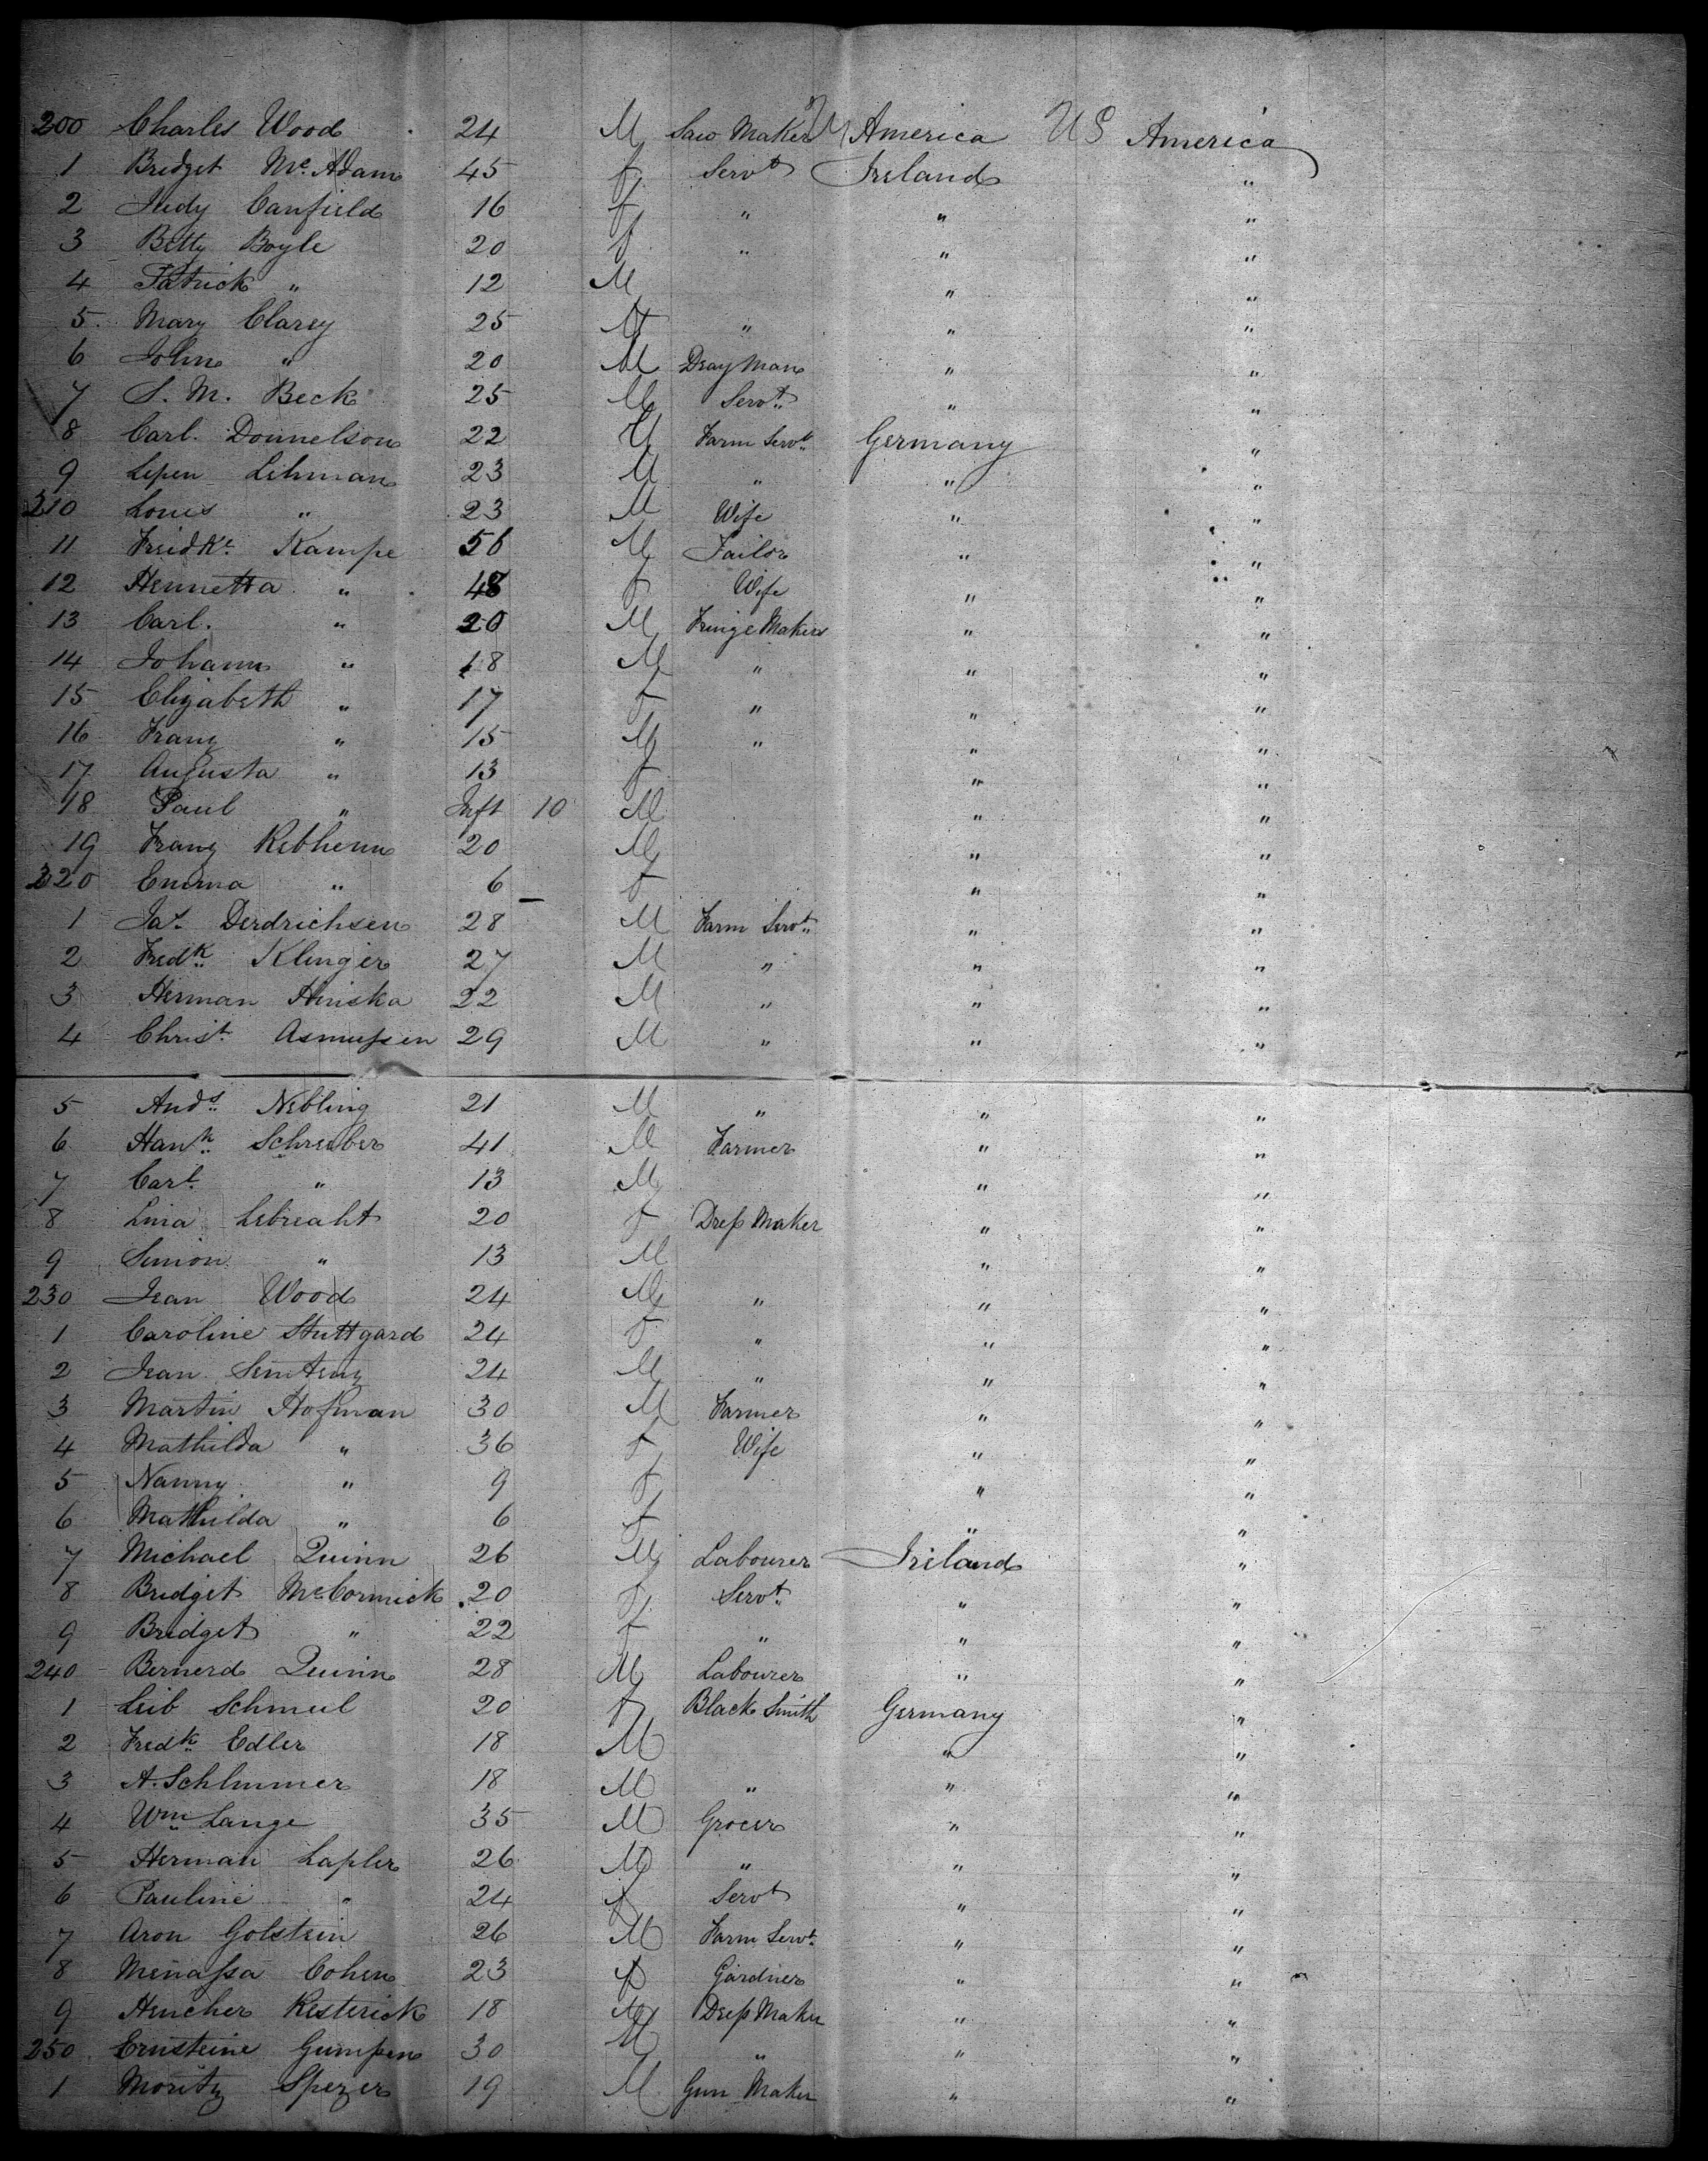 200 Charles Wood 24 M Saw Maker America US America
1 Bridget Mc. Adam 45 f Servt Ireland "
2 Hedy Canfield 16 f " " "
3 Betty Boyle 20 f " " "
4 Patrick " 12 M " "
5 Mary Clarey 25 " " "
6 John " 20 M Dray Man " "
7 S. M. Beck 25 M Servt " "
8 Carl. Donnelson 22 M Farm Servt Germany "
9 Lepen Lihman 23 M " " "
210 Louis " 23 M Wife " "
11 Freidk. Kampe 56 M Tailor " "
12 Hennetta " 48 f Wife " "
13 Carl. " 20 M Fringe Makers " "
14 Johann " 18 M " " "
15 Elizabeth " 17 f " " "
16 Franz " 15 M " " "
17 Augusta " 13 f " "
18 Paul " Inft 10 M " "
19 Franz Rebhenn 20 M " "
220 Emma " 6 f " "
1 Jas. Derdrichsen 28 M Farm Servt " "
2 Fredk Klinger 27 M " " "
3 Herman Hinska 22 M " " "
4 Christ. Asmussen 29 M " " "
5 Ands Nebling 21 M " " "
6 Hank Schreiber 41 M Farmer " "
7 Carl " 13 M " "
8 Lina Lebreaht 20 f Dress Maker " "
9 Simion " 13 M " "
230 Jean Wood 24 M " " "
1 Caroline Stuttgard 24 f " " "
2 Jean 24 M " " "
3 Martin Hofman 30 M Farmer " "
4 Mathilda " 36 f Wife " "
5 Nanny " 9 f " "
6 Mathilda " 6 f " "
7 Michael Quinn 26 M Labourer Ireland "
8 Bridget McCormick 20 f Servt " "
9 Bridget " 22 f " " "
240 Bernerd Quinn 28 M Labourer " "
1 Leib Schmeul 20 f Black Smith Germany "
2 Fredk Edler 18 M " "
3 A. Schlimmer 18 M " " "
4 Wm Lange 35 M Grocer " "
5 Herman Lapler 26 M " " "
6 Pauline " 24 f Servt " "
7 Aron Golstein 26 M Farm Servt " "
8 Menassa Cohen 23 Gardner " "
9 Hencher Resterick 18 M Dress Maker " "
250 Ernsteine Gumpen 30 M " " "
1 Moritz Spezer 19 M Gun Maker " "